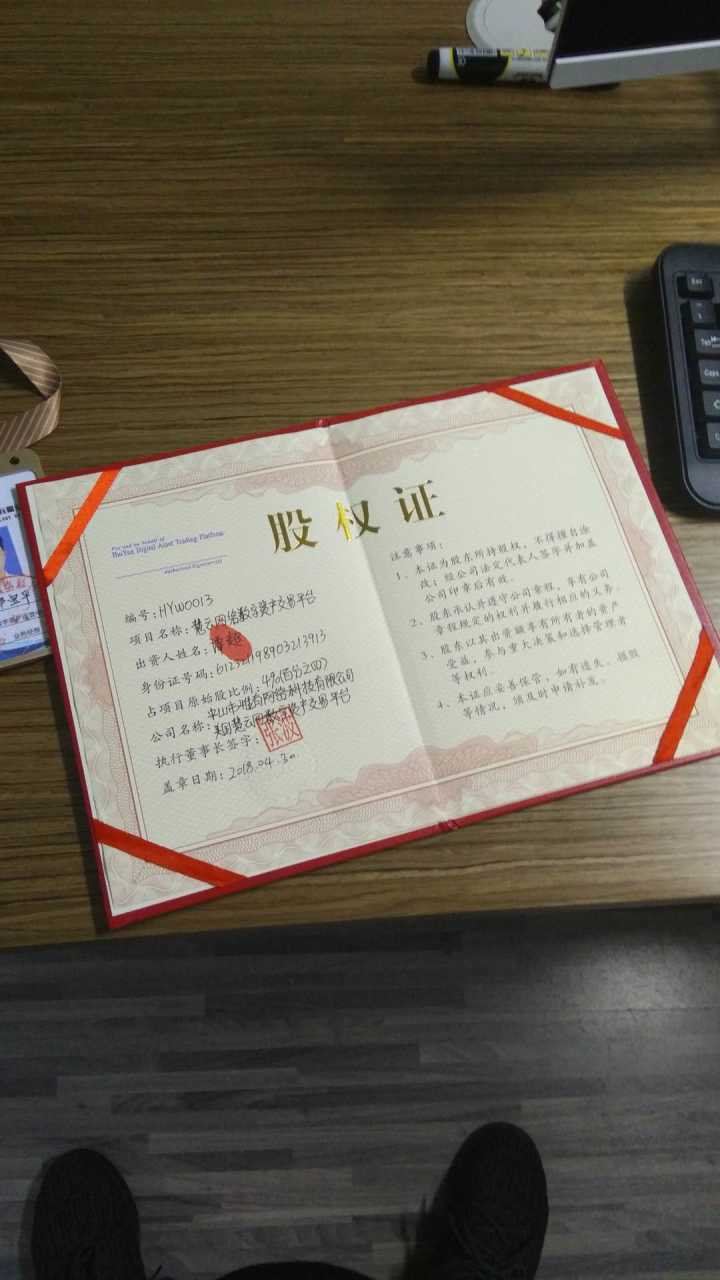 股权证
For and on behalf of
HuiYun Digital Asset Trading Platform
Authorized Signature(s)
编号:HYW0013
项目名称:慧云网络数字资产交易平台
出资人姓名:
身份证号码:612321198903213913
占项目原始股比例:4%(百分之四)
公司名称:
美国慧云网数字资产交易平台
执行董事长签字:
盖章日期:2018.04.30
注意事项:
1、本证为股东所持股权,不得擅自涂
改;经公司法定代表人签字并加盖
公司印章后有效。
2、股东承认并遵守公司章程,享有公司
章程规定的权利并履行相应的义务。
3、股东以其出资额享有所有者的资产
受益,参与重大决策和选择管理者
等权利。
4、本证应妥善保管,如有遗失、摧毁
等情况,须及时申请补发。
Esc
Caps